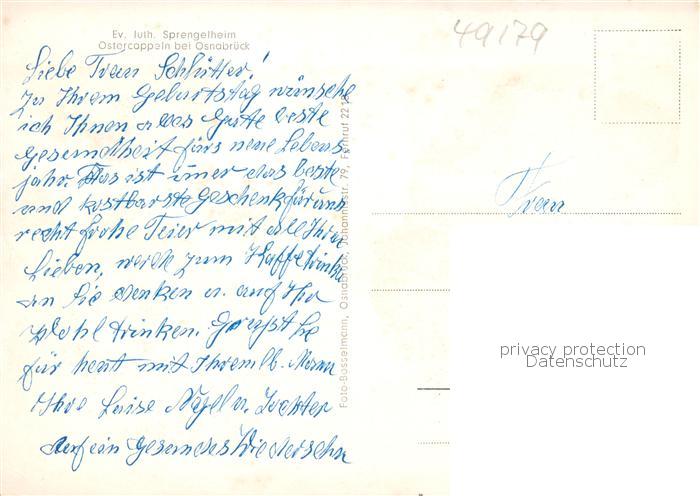 Ev. luth. Sprengelheim
Ostercappeln bei Osnabrück
49179
Liebe Frau Schlütter!
Zu Ihrem Geburtstag wünsche
ich Ihnen alles Gute beste
Gesundheit fürs neue Lebens
jahr. Das ist imer das beste
und kostbarste Geschenk für uns
recht frohe Feier mit all Ihren
Lieben, werde zum Kaffetrinken
an Sie denken u. auf Ihr
Wohl trinken. Grüßt Sie
für heut mit Ihrem lb. Mann
Ihre Luise Nagel u. Tochter
Auf ein gesundes Wiedersehn
Foto-Bosselmann, Osnabrück, Johannisstr. 79, Fernruf
Frau
privacy protection
Datenschutz